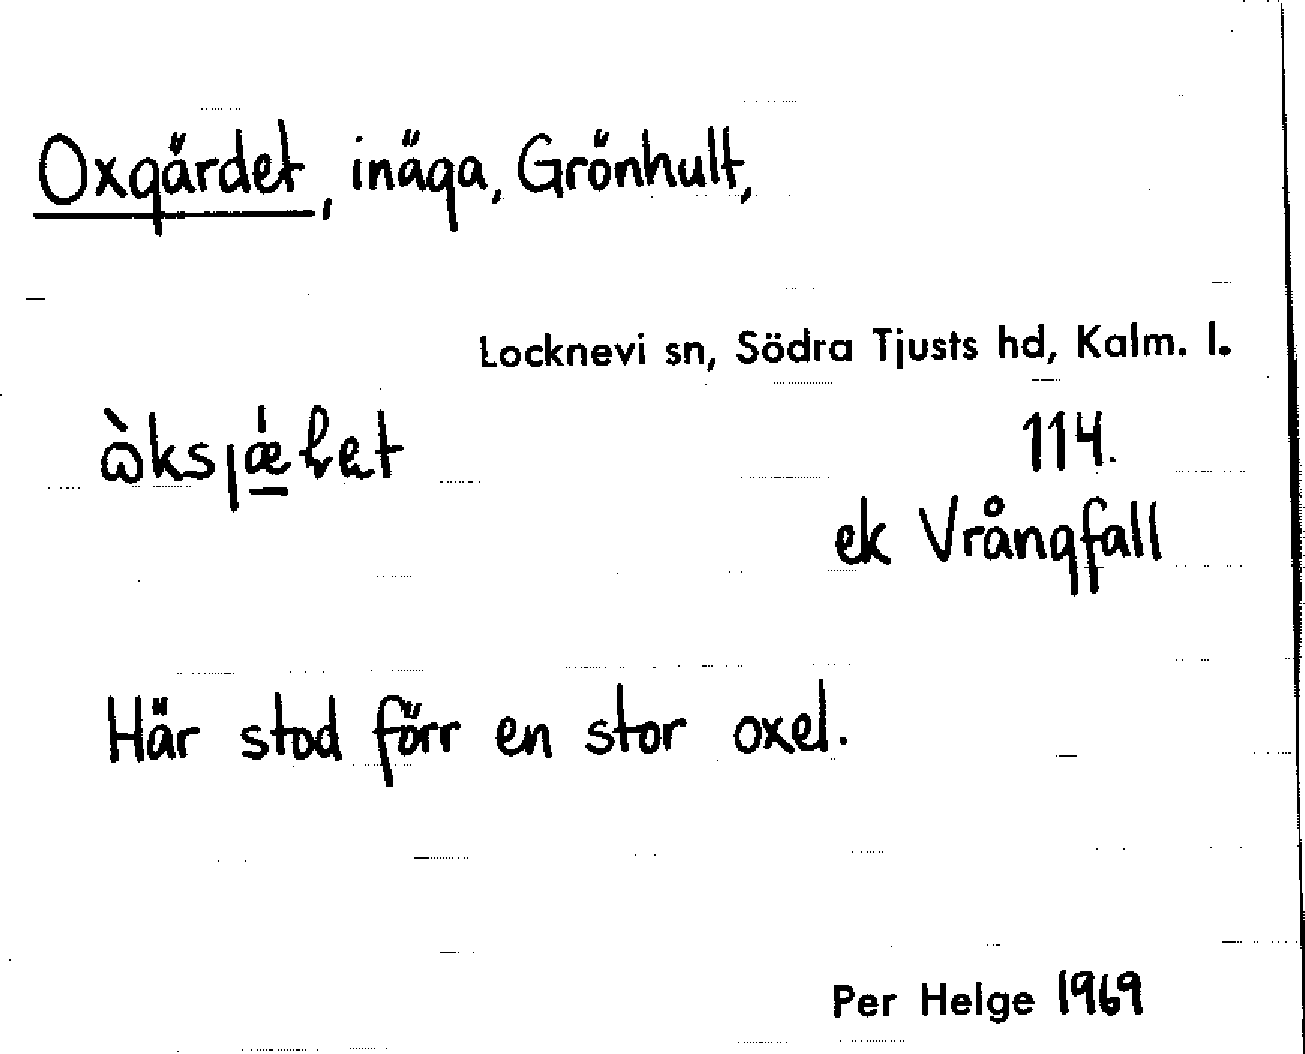 Oxgärdet, inäga, Grönhult,
Locknevi sn, Södra Tjusts hd, Kalm. l.
114.
ek Vrångfall
Här stod förr en stor oxel.
Per Helge 1969